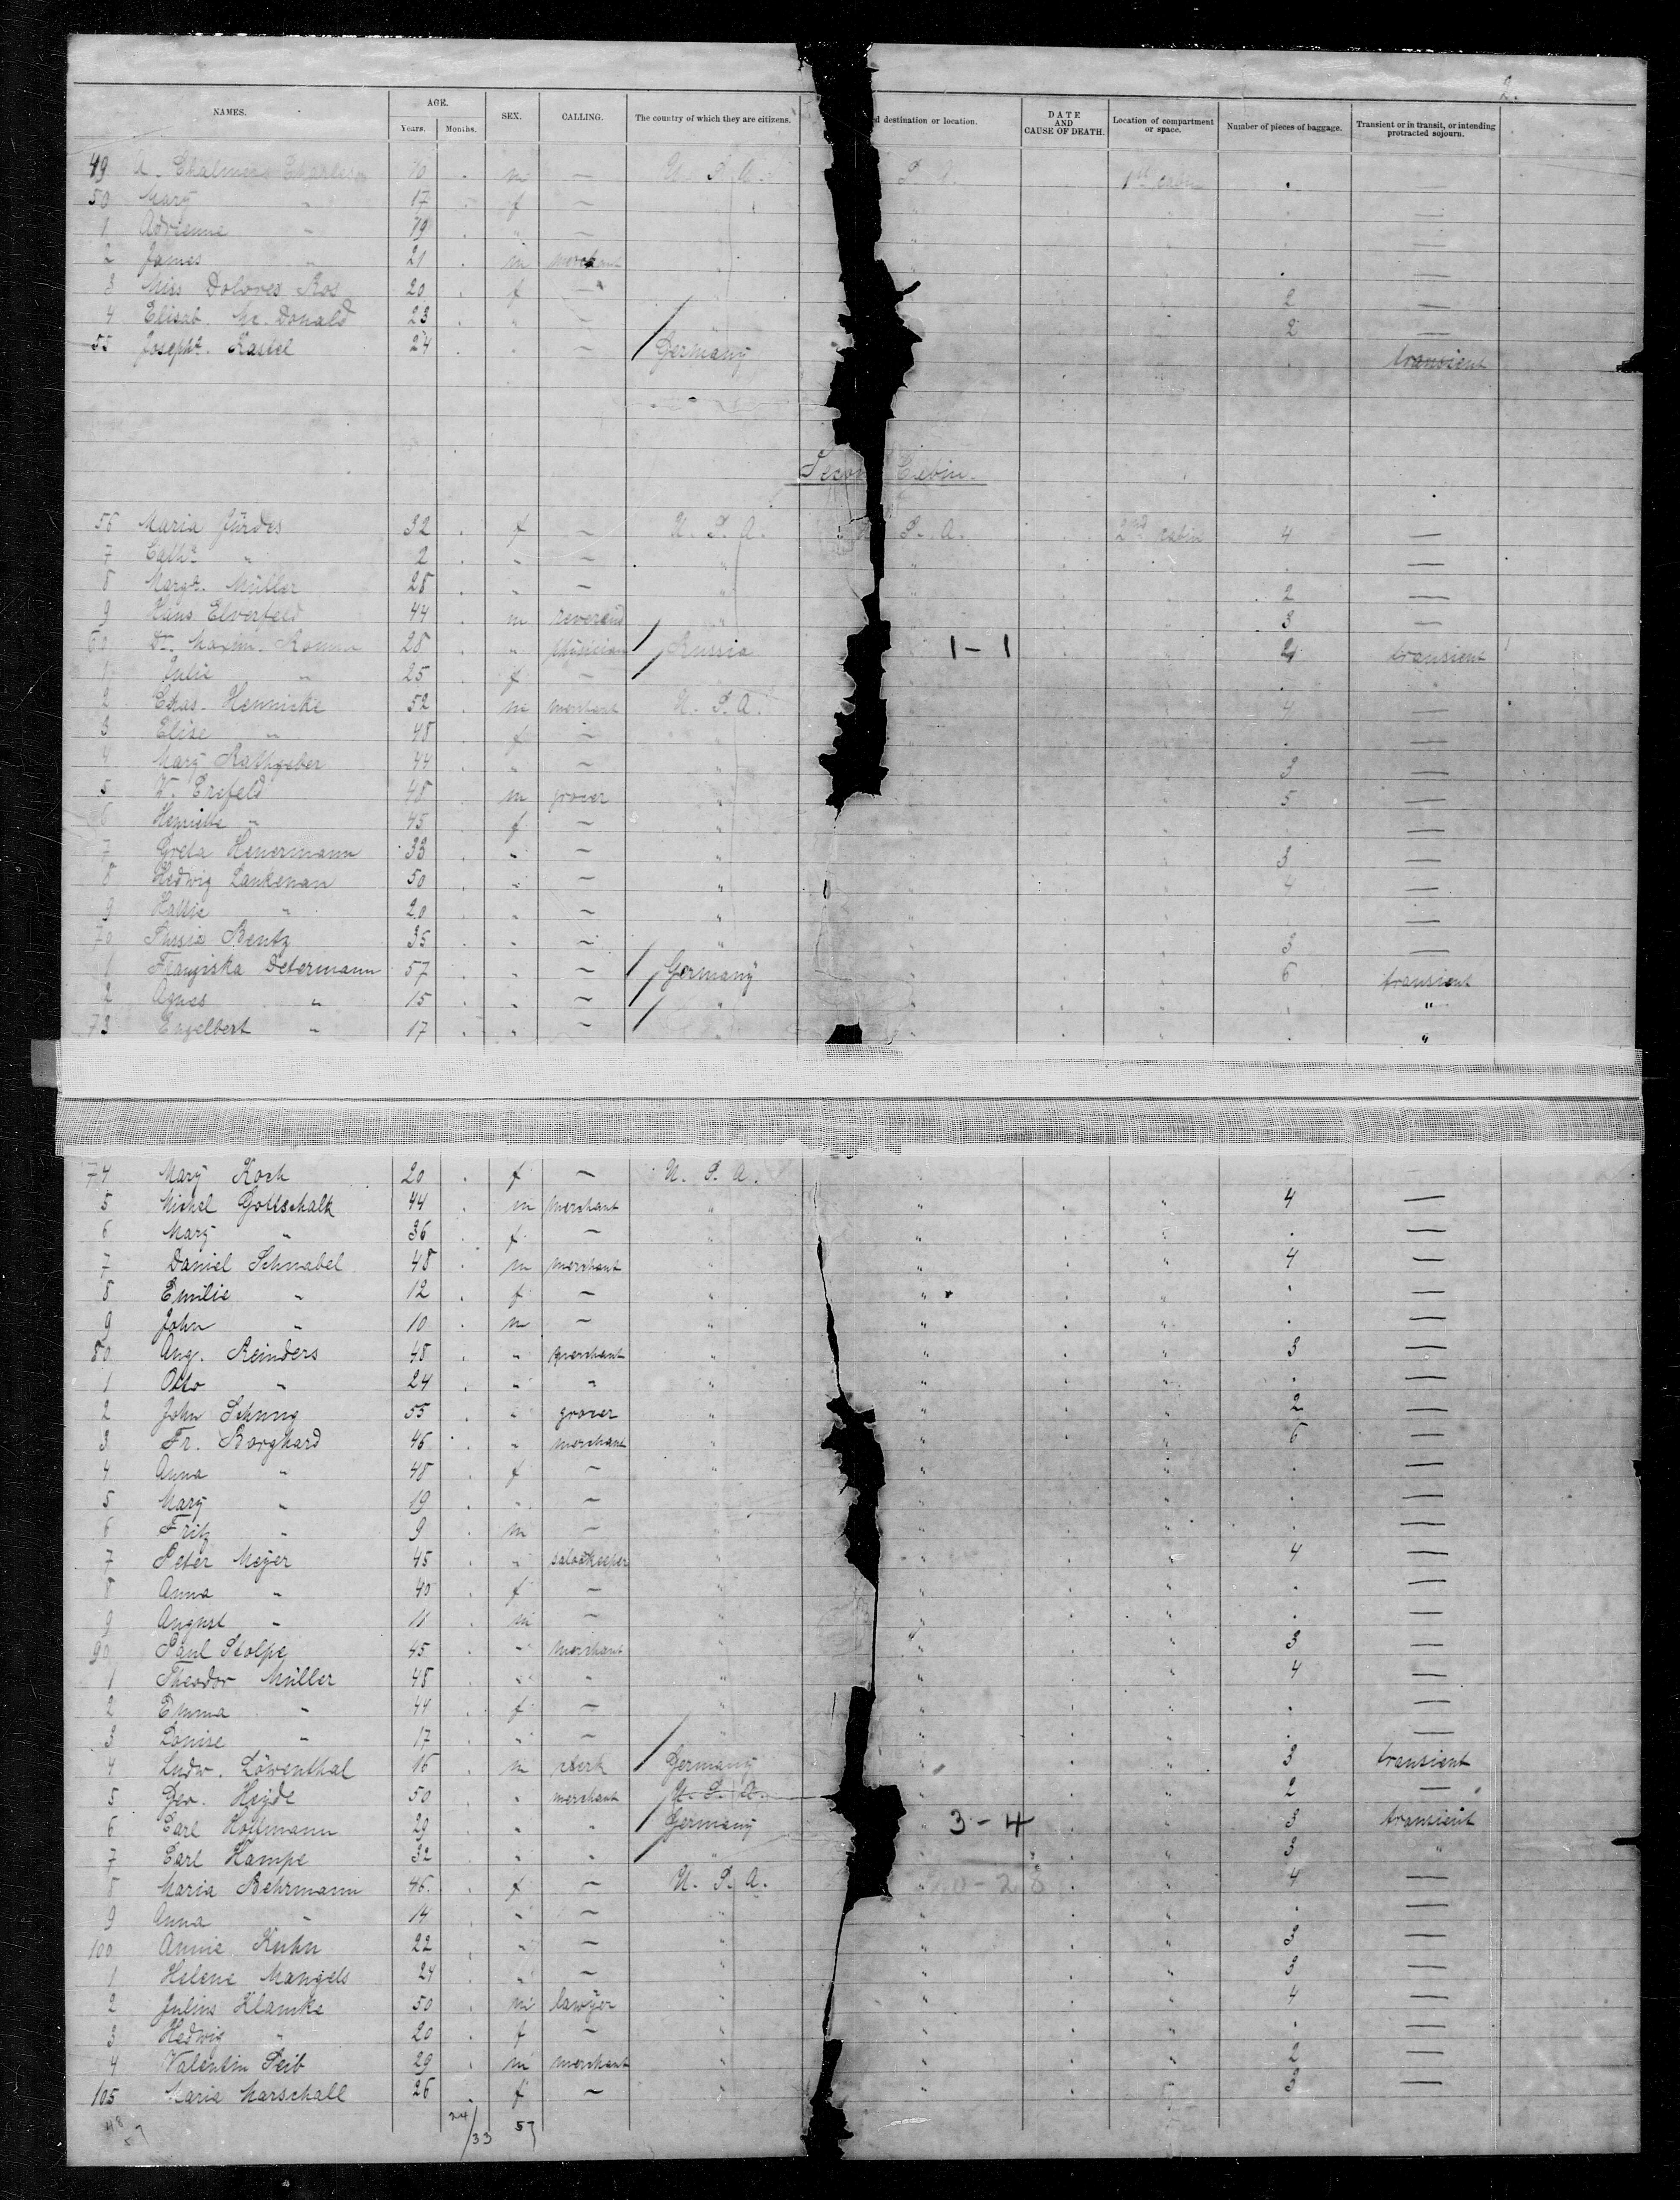 2.
NAMES. AGE. SEX. CALLING. The country of which they are citizens. d destination or location. DATE AND CAUSE OF DEATH. Location of compartment or space. Number of pieces of baggage. Transient or in transit, or intending protracted sojourn.
Years. Months.
49 Charles m — U. S. A. S. A. 1st cabin . —
50 Mary " 17 . f — " " —
1 Adrienne " 19 . " — " " —
2 James " 21 . m merchant " " . —
3 Miss Dolores Ros 20 . f — " 2 —
4 Elisab. Mc. Donald 23 . " — " 2 —
55 Josepha. Kastel 24 . " — Germany . transient
Second Cabin.
56 Maria Jürdes 32 . f — U. S. A. S. A. 2nd cabin 4 —
7 Catha " 2 . " — " " . —
8 Margr. Müller 28 . " — " " 2 —
9 Hans Elverfeld 44 . m reverend " " 3 —
60 Dr. Maxim. 28 . " physician Russia 1 - 1 transient
1 Julie " 25 . f — .
2 Chas. Hennicke 52 . m merchant U. S. A. 4 —
3 Elise " 48 . f — " . —
4 Mary Rathgeber 44 . " — " 3 —
5 W. Crefeld 48 . m grocer " 5 —
6 Henriette " 45 . f — " " . —
7 Greta Heuermann 33 . " — " " 3 —
8 Hedwig Lankenau 50 . " — " " 4 —
9 Kattie " 20 . " — " " —
70 Bentz 35 . " — " " 3 —
1 Franziska Determann 57 . " — Germany " 6 transient
2 Agnes " 15 . " — " " . "
73 Engelbert " 17 . " — " " . "
74 Mary Koch 20 . f — U. S. A.
5 Michel Gottschalk 44 . m merchant " " . " 4 —
6 Mary " 36 . f — " " . " . —
7 Daniel Schnabel 48 . m merchant " " . " 4 —
8 Emilie " 12 . f — " " . " . —
9 John " 10 . m — " " . " . —
80 Aug. Reinders 48 . " merchant " " . " 3 —
1 Otto " 24 . " " " " . " . —
2 John Schung 55 . " grocer " " . " 2 —
3 Fr. Borghard 46 . " merchant " " . " 6 —
4 Anna " 48 . f — " " . " . —
5 Mary " 19 . " — " " . " . —
6 Fritz " 9 . m — " " . " . —
7 Peter Meyer 45 . " saloonkeeper " " . " 4 —
8 Anna " 40 . f — " " . " . —
9 August " 11 . m — " " . " . —
90 Paul Stolpe 45 . " merchant " " . " 3 —
1 Theodor Müller 48 . " " " " . " 4 —
2 Emma " 44 . f — " " . " . —
3 Louise " 17 . " — " " . " . —
4 Ludw. Löwenthal 16 . m clerk Germany " . " 3 transient
5 Geo. Heyde 50 . " merchant U. S. A. " . " 2 —
6 Carl Hoffmann 29 . " " Germany " 3 - 4 . " 3 transient
7 Carl Kampe 32 . " " " " . " 3 "
8 Maria Behrmann 46. . f — U. S. A. 0 - 28 . " 4 —
9 Anna " 14 . " — " " . " . —
100 Annie Kuhn 22 . " — " " . " 3 —
1 Helene Mangels 24 . " — " " . " 3 —
2 Julius Klamke 50 . m lawyer " " . " 4 —
3 Hedwig " 20 . f — " " . " . —
4 Valentin Seib 29 . m merchant " " . " 2 —
105 Marie Marschall 26 . f — " " . " 3 —
48 57 24/33 57